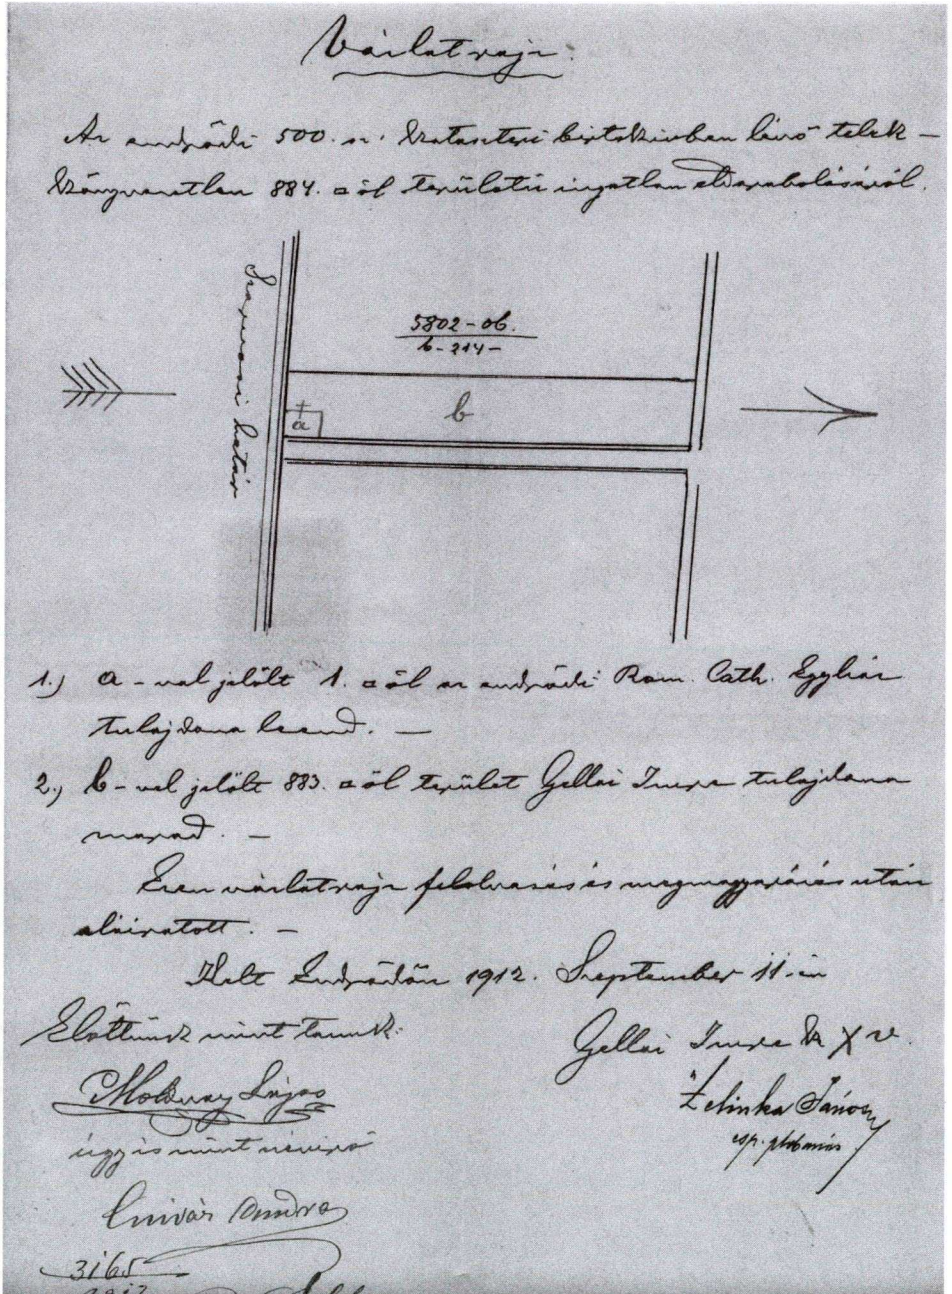 Vázlatrajz.
Az endrődi 500. sz. kataszteri birtokívben lévő telek-
könyvezetlen 884. □ öl területű ingatlan eldarabolásáról.
Szarvasi határ
5802-ob.
b-214-
a
b
1.) a-val jelölt 1. □ öl az endrődi Rom. Cath. Egyház
tulajdona leend. —
2.) b-vel jelölt 883. □ öl terület Gellai Imre tulajdona
marad. —
Ezen vázlatrajz felolvasás és megmagyarázás után
aláiratott. —
Kelt Endrődön 1912. Szeptember 11-én
Előttünk mint tanuk:
Gellai Imre k X v.
Lajos
Zelinka János
esp. plébános
úgyis mint névíró
3165
1912